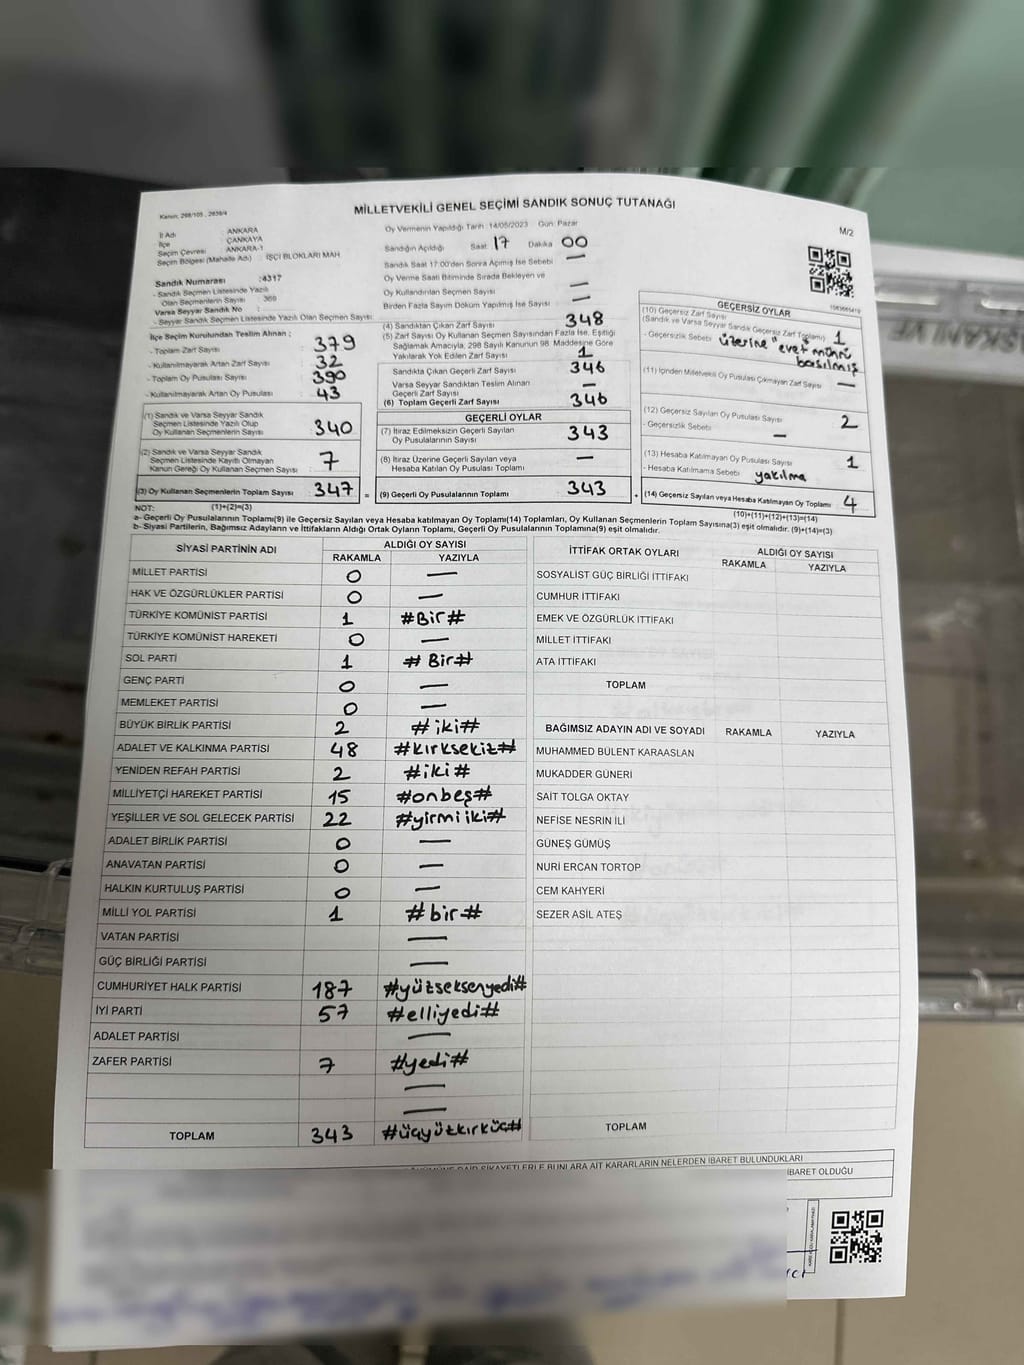 MİLLETVEKİLİ GENEL SEÇİMİ SANDIK SONUÇ TUTANAĞI
Kanun: 298/105 , 2839/4
M/2
İl Adı : ANKARA
İlçe : ÇANKAYA
Seçim Çevresi : ANKARA-1
Seçim Bölgesi (Mahalle Adı) : İŞÇİ BLOKLARI MAH
Sandık Numarası :4317
- Sandık Seçmen Listesinde Yazılı
Olan Seçmenlerin Sayısı : 369
Varsa Seyyar Sandık No :
- Seyyar Sandık Seçmen Listesinde Yazılı Olan Seçmen Sayısı:
Oy Vermenin Yapıldığı Tarih: 14/05/2023 Gün: Pazar
Sandığın Açıldığı Saat: 17 Dakika 00
Sandık Saat 17:00'den Sonra Açılmış İse Sebebi —
Oy Verme Saati Bitiminde Sırada Bekleyen ve
Oy Kullandırılan Seçmen Sayısı —
Birden Fazla Sayım Döküm Yapılmış İse Sayısı : —
İlçe Seçim Kurulundan Teslim Alınan :
- Toplam Zarf Sayısı : 379
- Kullanılmayarak Artan Zarf Sayısı : 32
- Toplam Oy Pusulası Sayısı : 390
- Kullanılmayarak Artan Oy Pusulası : 43
(1) Sandık ve Varsa Seyyar Sandık
Seçmen Listesinde Yazılı Olup
Oy Kullanan Seçmenlerin Sayısı 340
(2) Sandık ve Varsa Seyyar Sandık
Seçmen Listesinde Kayıtlı Olmayan
Kanun Gereği Oy Kullanan Seçmen Sayısı 7
(3) Oy Kullanan Seçmenlerin Toplam Sayısı 347 =
(4) Sandıktan Çıkan Zarf Sayısı 348
(5) Zarf Sayısı Oy Kullanan Seçmen Sayısından Fazla İse, Eşitliği
Sağlamak Amacıyla, 298 Sayılı Kanunun 98. Maddesine Göre
Yakılarak Yok Edilen Zarf Sayısı 1
Sandıkta Çıkan Geçerli Zarf Sayısı 346
Varsa Seyyar Sandıktan Teslim Alınan
Geçerli Zarf Sayısı —
(6) Toplam Geçerli Zarf Sayısı 346
GEÇERLİ OYLAR
(7) İtiraz Edilmeksizin Geçerli Sayılan
Oy Pusulalarının Sayısı 343
(8) İtiraz Üzerine Geçerli Sayılan veya
Hesaba Katılan Oy Pusulası Toplamı —
(9) Geçerli Oy Pusulalarının Toplamı 343 +
GEÇERSİZ OYLAR
(10) Geçersiz Zarf Sayısı
(Sandık ve Varsa Seyyar Sandık Geçersiz Zarf Toplamı) 1
- Geçersizlik Sebebi : üzerine "evet" mührü
basılmış
(11) İçinden Milletvekili Oy Pusulası Çıkmayan Zarf Sayısı —
(12) Geçersiz Sayılan Oy Pusulası Sayısı 2
- Geçersizlik Sebebi : —
(13) Hesaba Katılmayan Oy Pusulası Sayısı 1
- Hesaba Katılmama Sebebi : yakılma
(14) Geçersiz Sayılan veya Hesaba Katılmayan Oy Toplamı 4
NOT: (1)+(2)=(3) (10)+(11)+(12)+(13)=(14)
a- Geçerli Oy Pusulalarının Toplamı(9) ile Geçersiz Sayılan veya Hesaba katılmayan Oy Toplamı(14) Toplamları, Oy Kullanan Seçmenlerin Toplam Sayısına(3) eşit olmalıdır. (9)+(14)=(3)
b- Siyasi Partilerin, Bağımsız Adayların ve İttifakların Aldığı Oy Sayıları Toplamı, Geçerli Oy Pusulalarının Toplamına(9) eşit olmalıdır.
SİYASİ PARTİNİN ADI ALDIĞI OY SAYISI
RAKAMLA YAZIYLA
MİLLET PARTİSİ 0 —
HAK VE ÖZGÜRLÜKLER PARTİSİ 0 —
TÜRKİYE KOMÜNİST PARTİSİ 1 #Bir#
TÜRKİYE KOMÜNİST HAREKETİ 0 —
SOL PARTİ 1 #Bir#
GENÇ PARTİ 0 —
MEMLEKET PARTİSİ 0 —
BÜYÜK BİRLİK PARTİSİ 2 #iki#
ADALET VE KALKINMA PARTİSİ 48 #kırksekiz#
YENİDEN REFAH PARTİSİ 2 #iki#
MİLLİYETÇİ HAREKET PARTİSİ 15 #onbeş#
YEŞİLLER VE SOL GELECEK PARTİSİ 22 #yirmiiki#
ADALET BİRLİK PARTİSİ 0 —
ANAVATAN PARTİSİ 0 —
HALKIN KURTULUŞ PARTİSİ 0 —
MİLLİ YOL PARTİSİ 1 #bir#
VATAN PARTİSİ —
GÜÇ BİRLİĞİ PARTİSİ —
CUMHURİYET HALK PARTİSİ 187 #yüzseksenyedi#
İYİ PARTİ 57 #elliyedi#
ADALET PARTİSİ —
ZAFER PARTİSİ 7 #yedi#
—
—
TOPLAM 343 #üçyüzkırküç#
İTTİFAK ORTAK OYLARI ALDIĞI OY SAYISI
RAKAMLA YAZIYLA
SOSYALİST GÜÇ BİRLİĞİ İTTİFAKI
CUMHUR İTTİFAKI
EMEK VE ÖZGÜRLÜK İTTİFAKI
MİLLET İTTİFAKI
ATA İTTİFAKI
TOPLAM
BAĞIMSIZ ADAYIN ADI VE SOYADI RAKAMLA YAZIYLA
MUHAMMED BÜLENT KARAASLAN
MUKADDER GÜNERİ
SAİT TOLGA OKTAY
NEFİSE NESRİN İLİ
GÜNEŞ GÜMÜŞ
NURİ ERCAN TORTOP
CEM KAHYERİ
SEZER ASİL ATEŞ
TOPLAM
ŞİKAYETLERLE BUNLARA AİT KARARLARIN NELERDEN İBARET BULUNDUKLARI
İBARET OLDUĞU